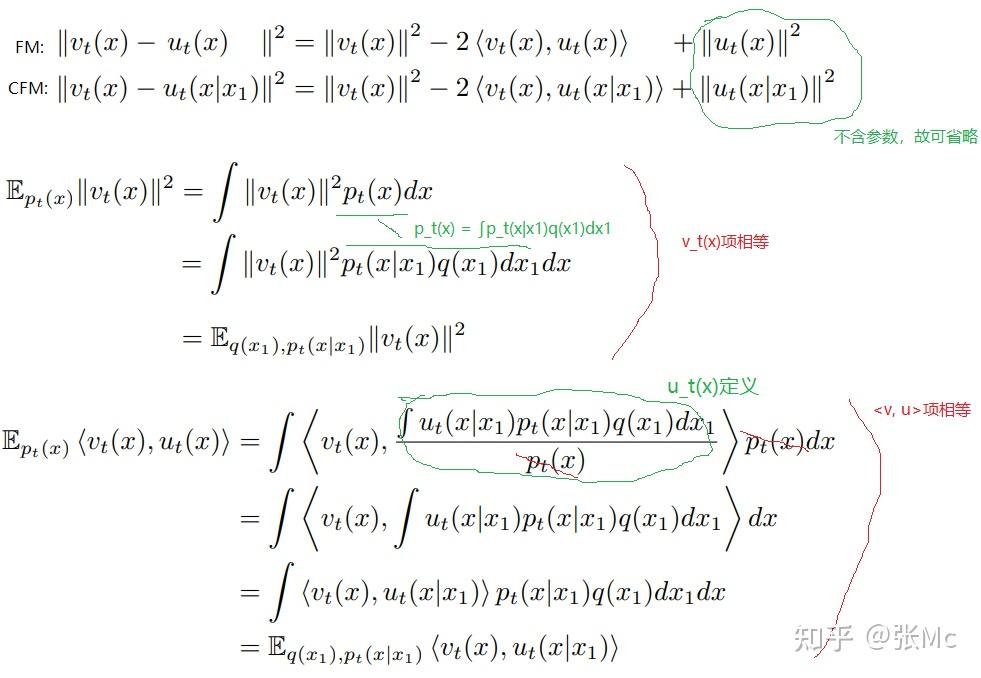 FM: ‖v_t(x) − u_t(x) ‖² = ‖v_t(x)‖² − 2⟨v_t(x), u_t(x)⟩ + ‖u_t(x)‖²
CFM: ‖v_t(x) − u_t(x|x₁)‖² = ‖v_t(x)‖² − 2⟨v_t(x), u_t(x|x₁)⟩ + ‖u_t(x|x₁)‖²
不含参数，故可省略
𝔼_{p_t(x)}‖v_t(x)‖² = ∫ ‖v_t(x)‖² p_t(x)dx
p_t(x) = ∫p_t(x|x1)q(x1)dx1
v_t(x)项相等
= ∫ ‖v_t(x)‖² p_t(x|x₁)q(x₁)dx₁dx
= 𝔼_{q(x₁),p_t(x|x₁)}‖v_t(x)‖²
u_t(x)定义
<v, u>项相等
𝔼_{p_t(x)} ⟨v_t(x), u_t(x)⟩ = ∫ ⟨v_t(x), ∫ u_t(x|x₁)p_t(x|x₁)q(x₁)dx₁ / p_t(x)⟩ p_t(x)dx
= ∫ ⟨v_t(x), ∫ u_t(x|x₁)p_t(x|x₁)q(x₁)dx₁⟩ dx
= ∫ ⟨v_t(x), u_t(x|x₁)⟩ p_t(x|x₁)q(x₁)dx₁dx
= 𝔼_{q(x₁),p_t(x|x₁)} ⟨v_t(x), u_t(x|x₁)⟩
知乎 @张Mc